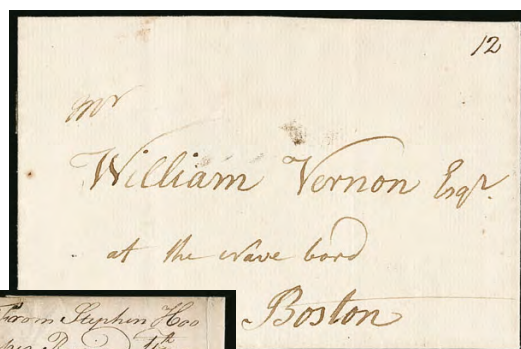 12
mr
William Vernon Esqr.
at the Nave bord
Boston
From Stephen Hoo